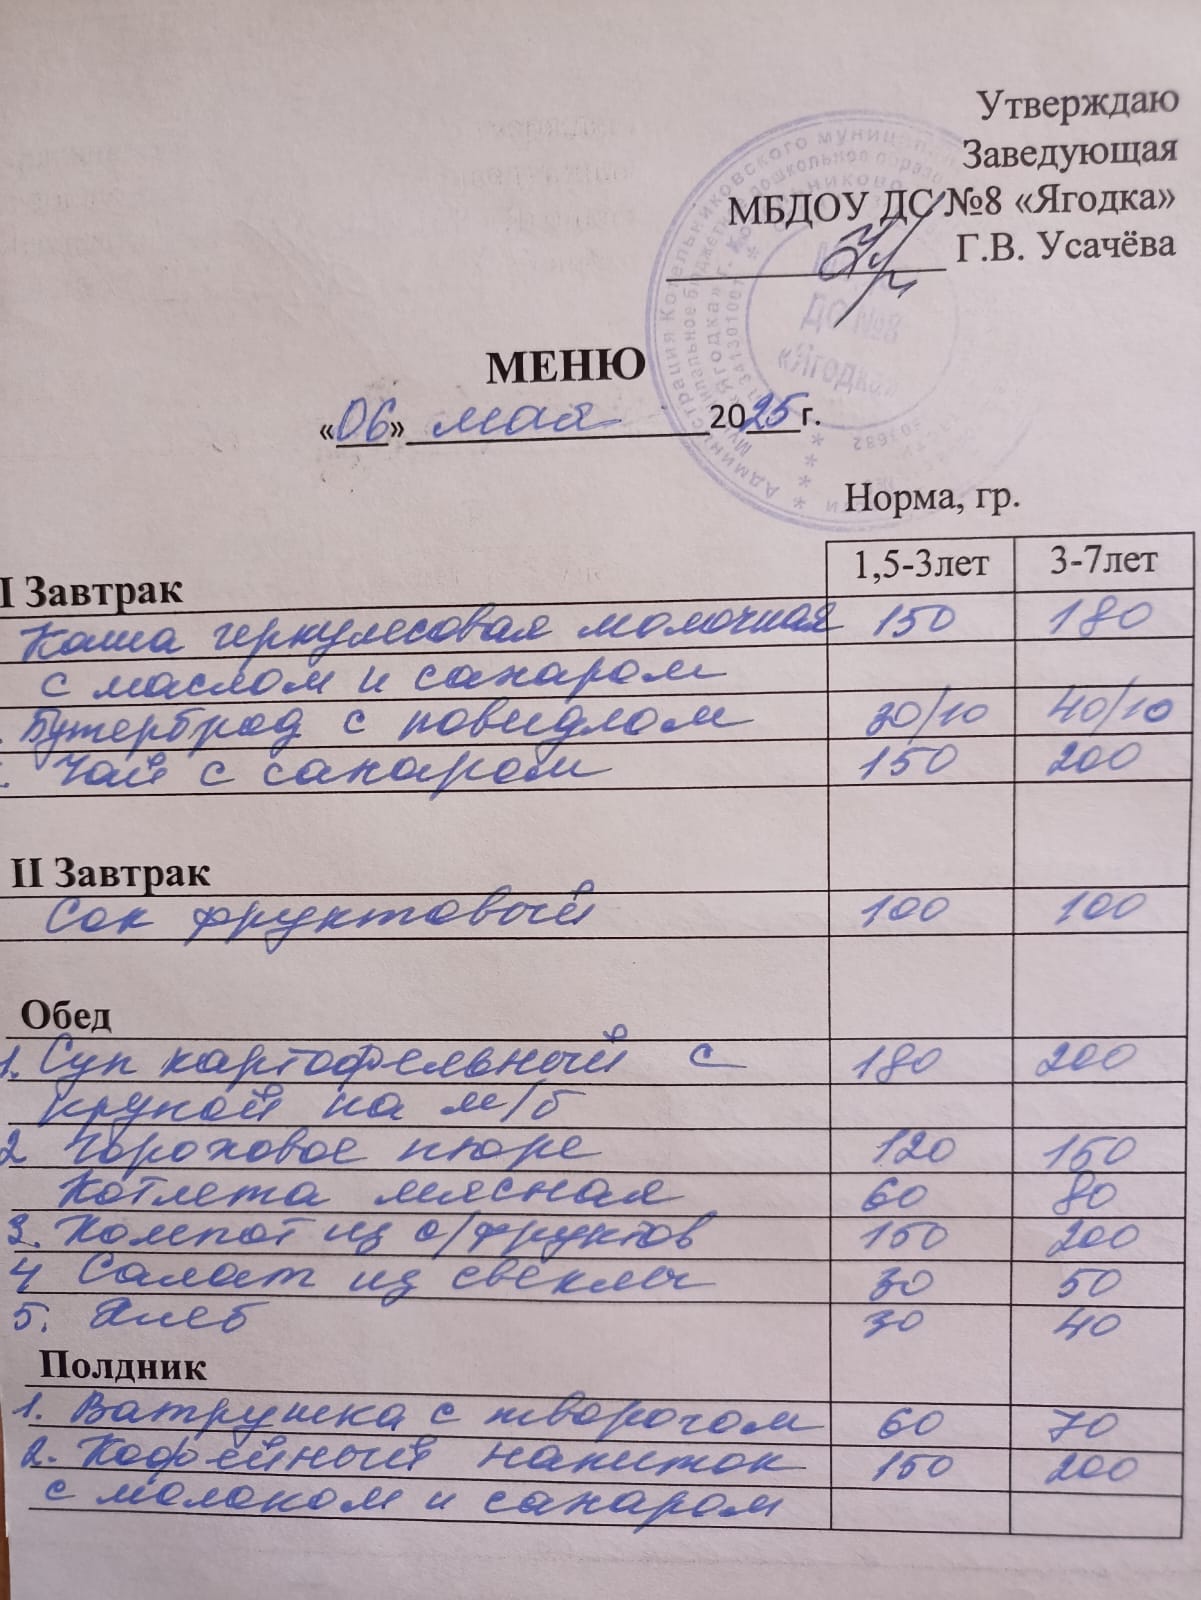 Утверждаю
Заведующая
МБДОУ ДС №8 «Ягодка»
Г.В. Усачёва
ДС №8
«Ягодка»
МЕНЮ
«06» мая 2025 г.
Норма, гр.
1,5-3лет 3-7лет
I Завтрак
Каша геркулесовая молочная 150 180
с маслом и сахаром
Бутерброд с повидлом 30/10 40/10
Чай с сахаром 150 200
II Завтрак
Сок фруктовый 100 100
Обед
1. Суп картофельный с 180 200
крупой на м/б
2 Гороховое пюре 120 150
Котлета мясная 60 80
3. Компот из с/фруктов 150 200
4 Салат из свеклы 30 50
5. Хлеб 30 40
Полдник
1. Ватрушка с творогом 60 70
2. Кофейный напиток 150 200
с молоком и сахаром